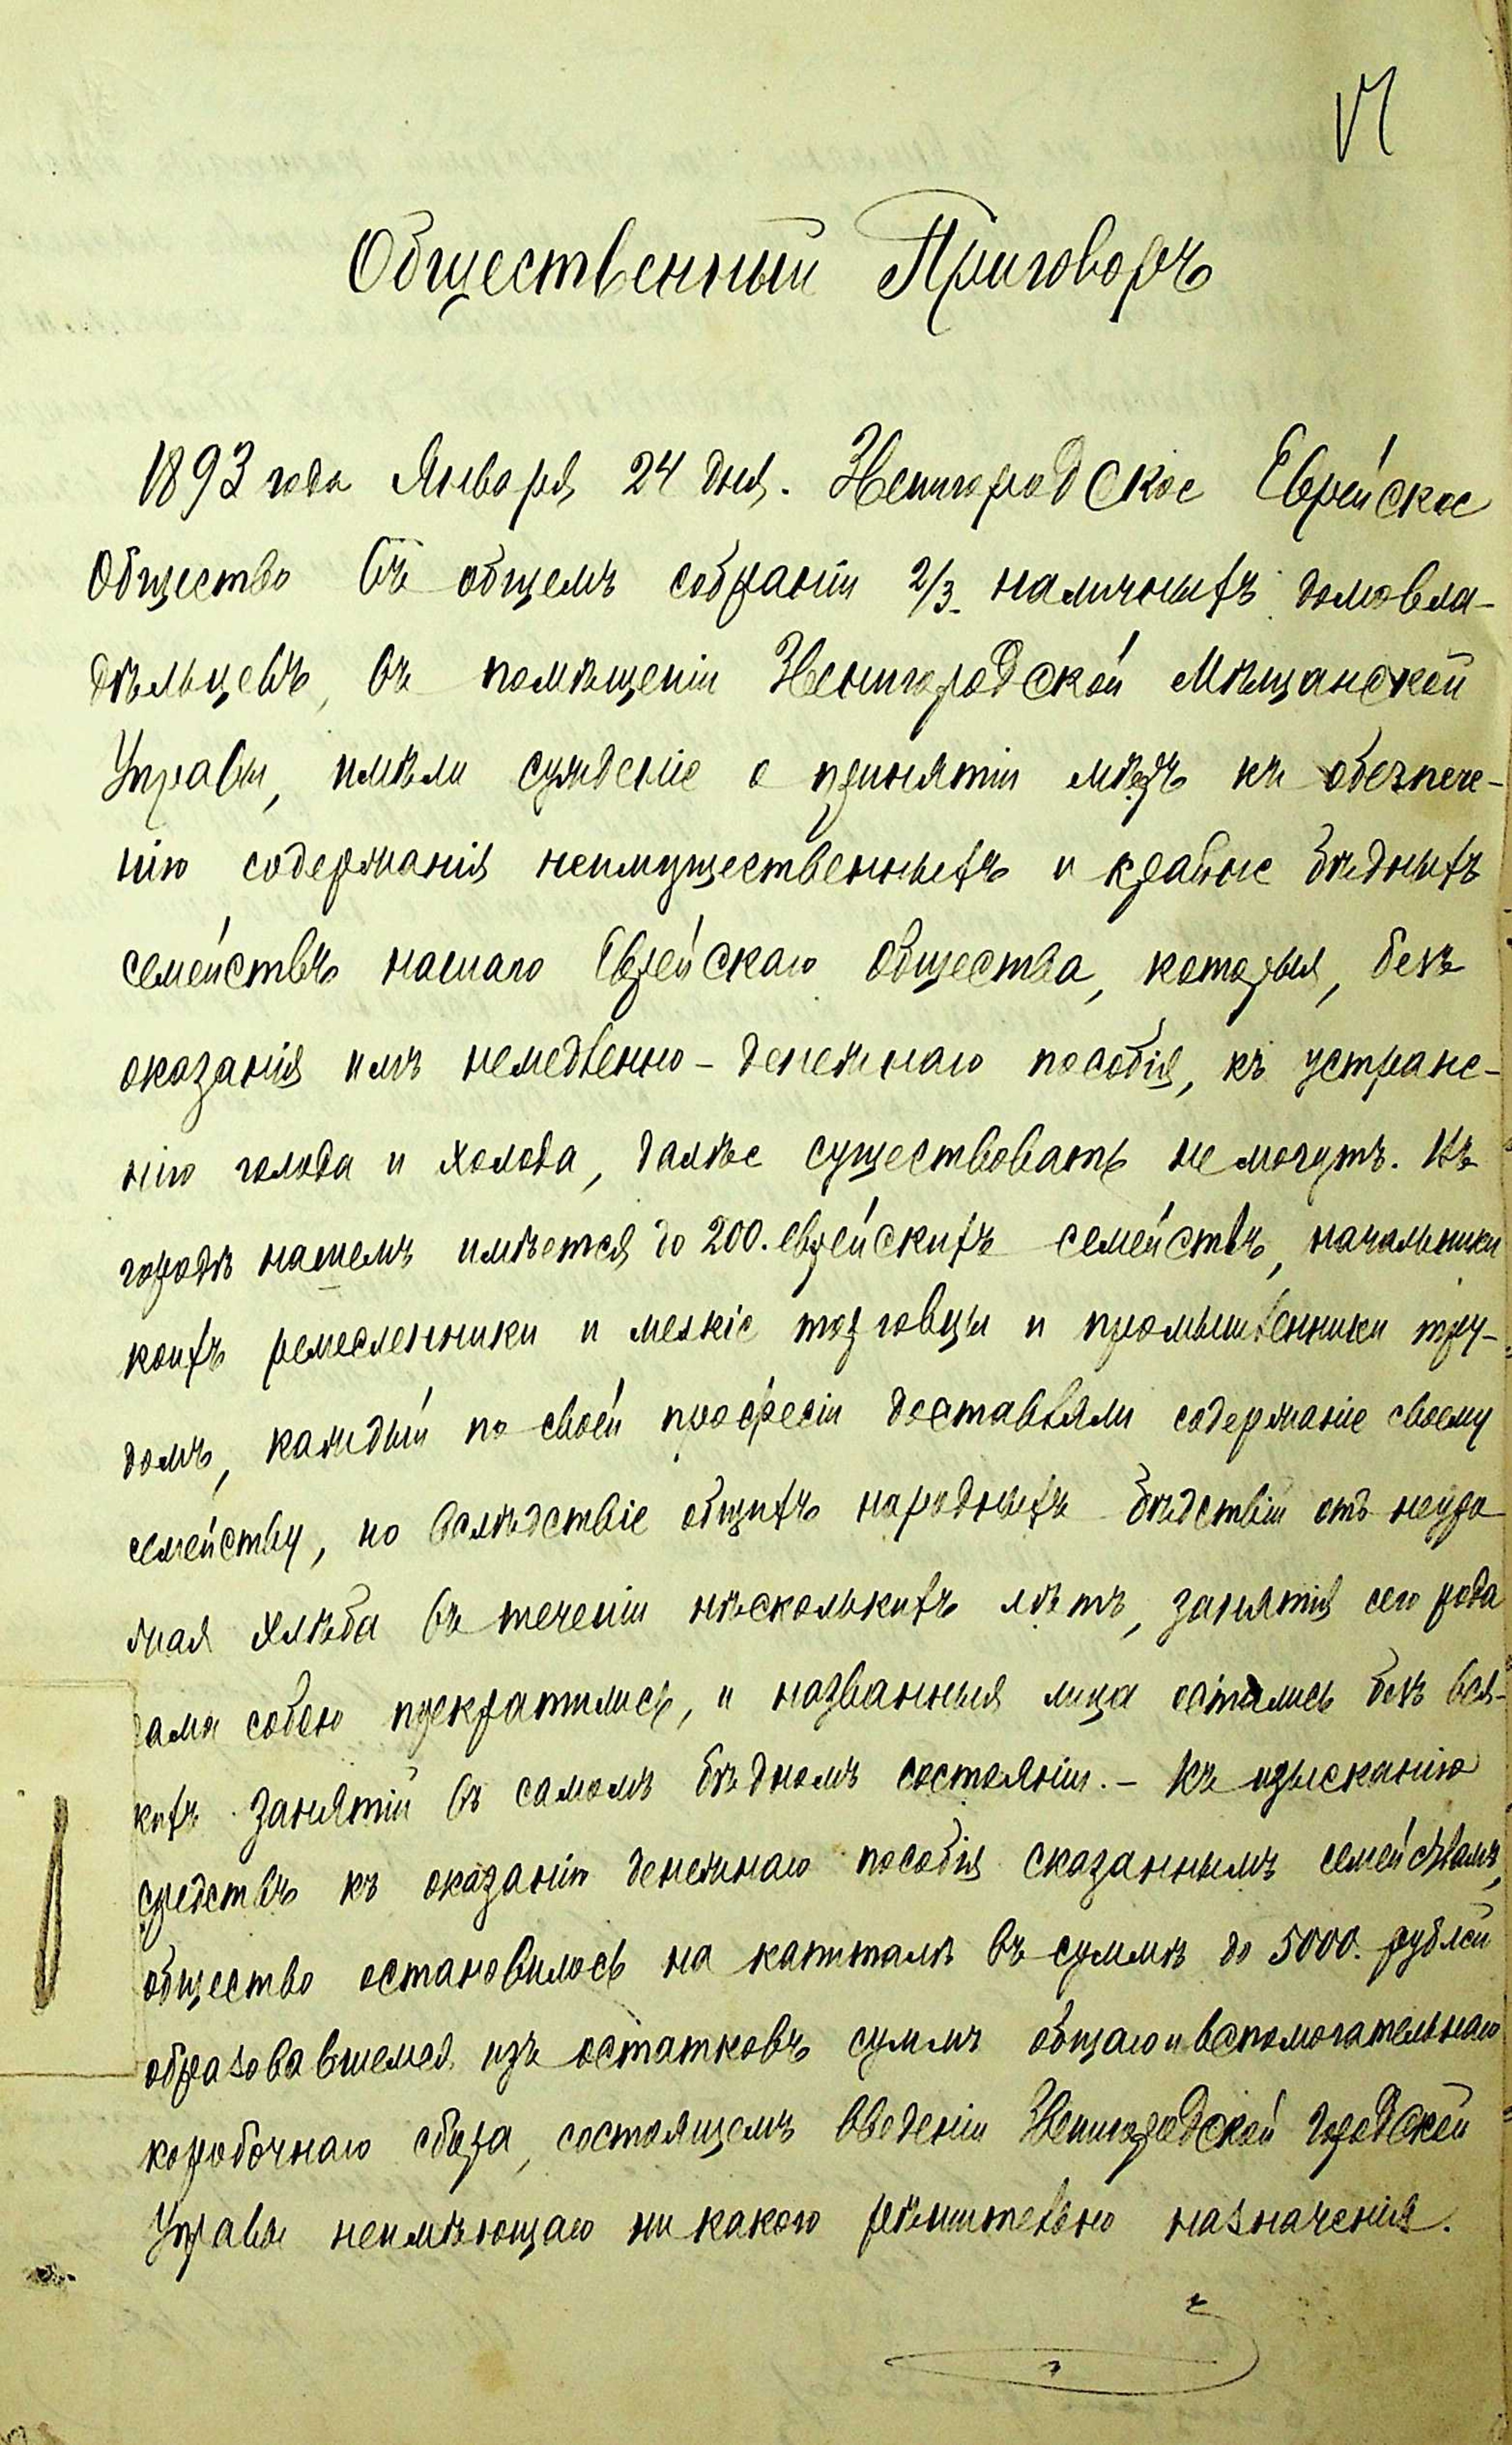 Общественный Приговоръ
1893 года Января 24 дня. Звенигородское Еврейское
Общество въ общемъ собраніи 2/3 наличныхъ домовла-
дѣльцевъ, въ помѣщеніи Звенигородской Мѣщанской
Управы, имѣли сужденіе о принятіи мѣръ къ обезпече-
нію содержанія неимущественныхъ и крайне бѣдныхъ
семействъ нашаго Еврейскаго Общества, которыя, безъ
оказанія имъ немедленно-денежнаго пособія, къ устране-
нію голода и холода, далѣе существовать не могутъ. Въ
городѣ нашемъ имѣется до 200. еврейскихъ семействъ, начальники
коихъ ремесленники и мелкіе торговцы и промышленники тру-
домъ, каждый по своей професіи доставляли содержаніе своему
семейству, но вслѣдствіе общихъ народныхъ бѣдствій отъ неуро
жая хлѣба въ теченіи нѣсколькихъ лѣтъ, занятія сего рода
сами собою прекратились, и названныя лица остались безъ вся-
кихъ занятій въ самомъ бѣдномъ состояніи. – Къ изысканію
средствъ къ оказанію денежнаго пособія сказаннымъ семействамъ,
общество остановилось на капиталѣ въ суммѣ до 5000. рублей
образовавшемся изъ остатковъ суммъ общаго и вспомогательнаго
коробочнаго сбора, состоящемъ введеніи Звенигородской Городской
Управы неимѣющаго ни какого рѣшительно назначенія.